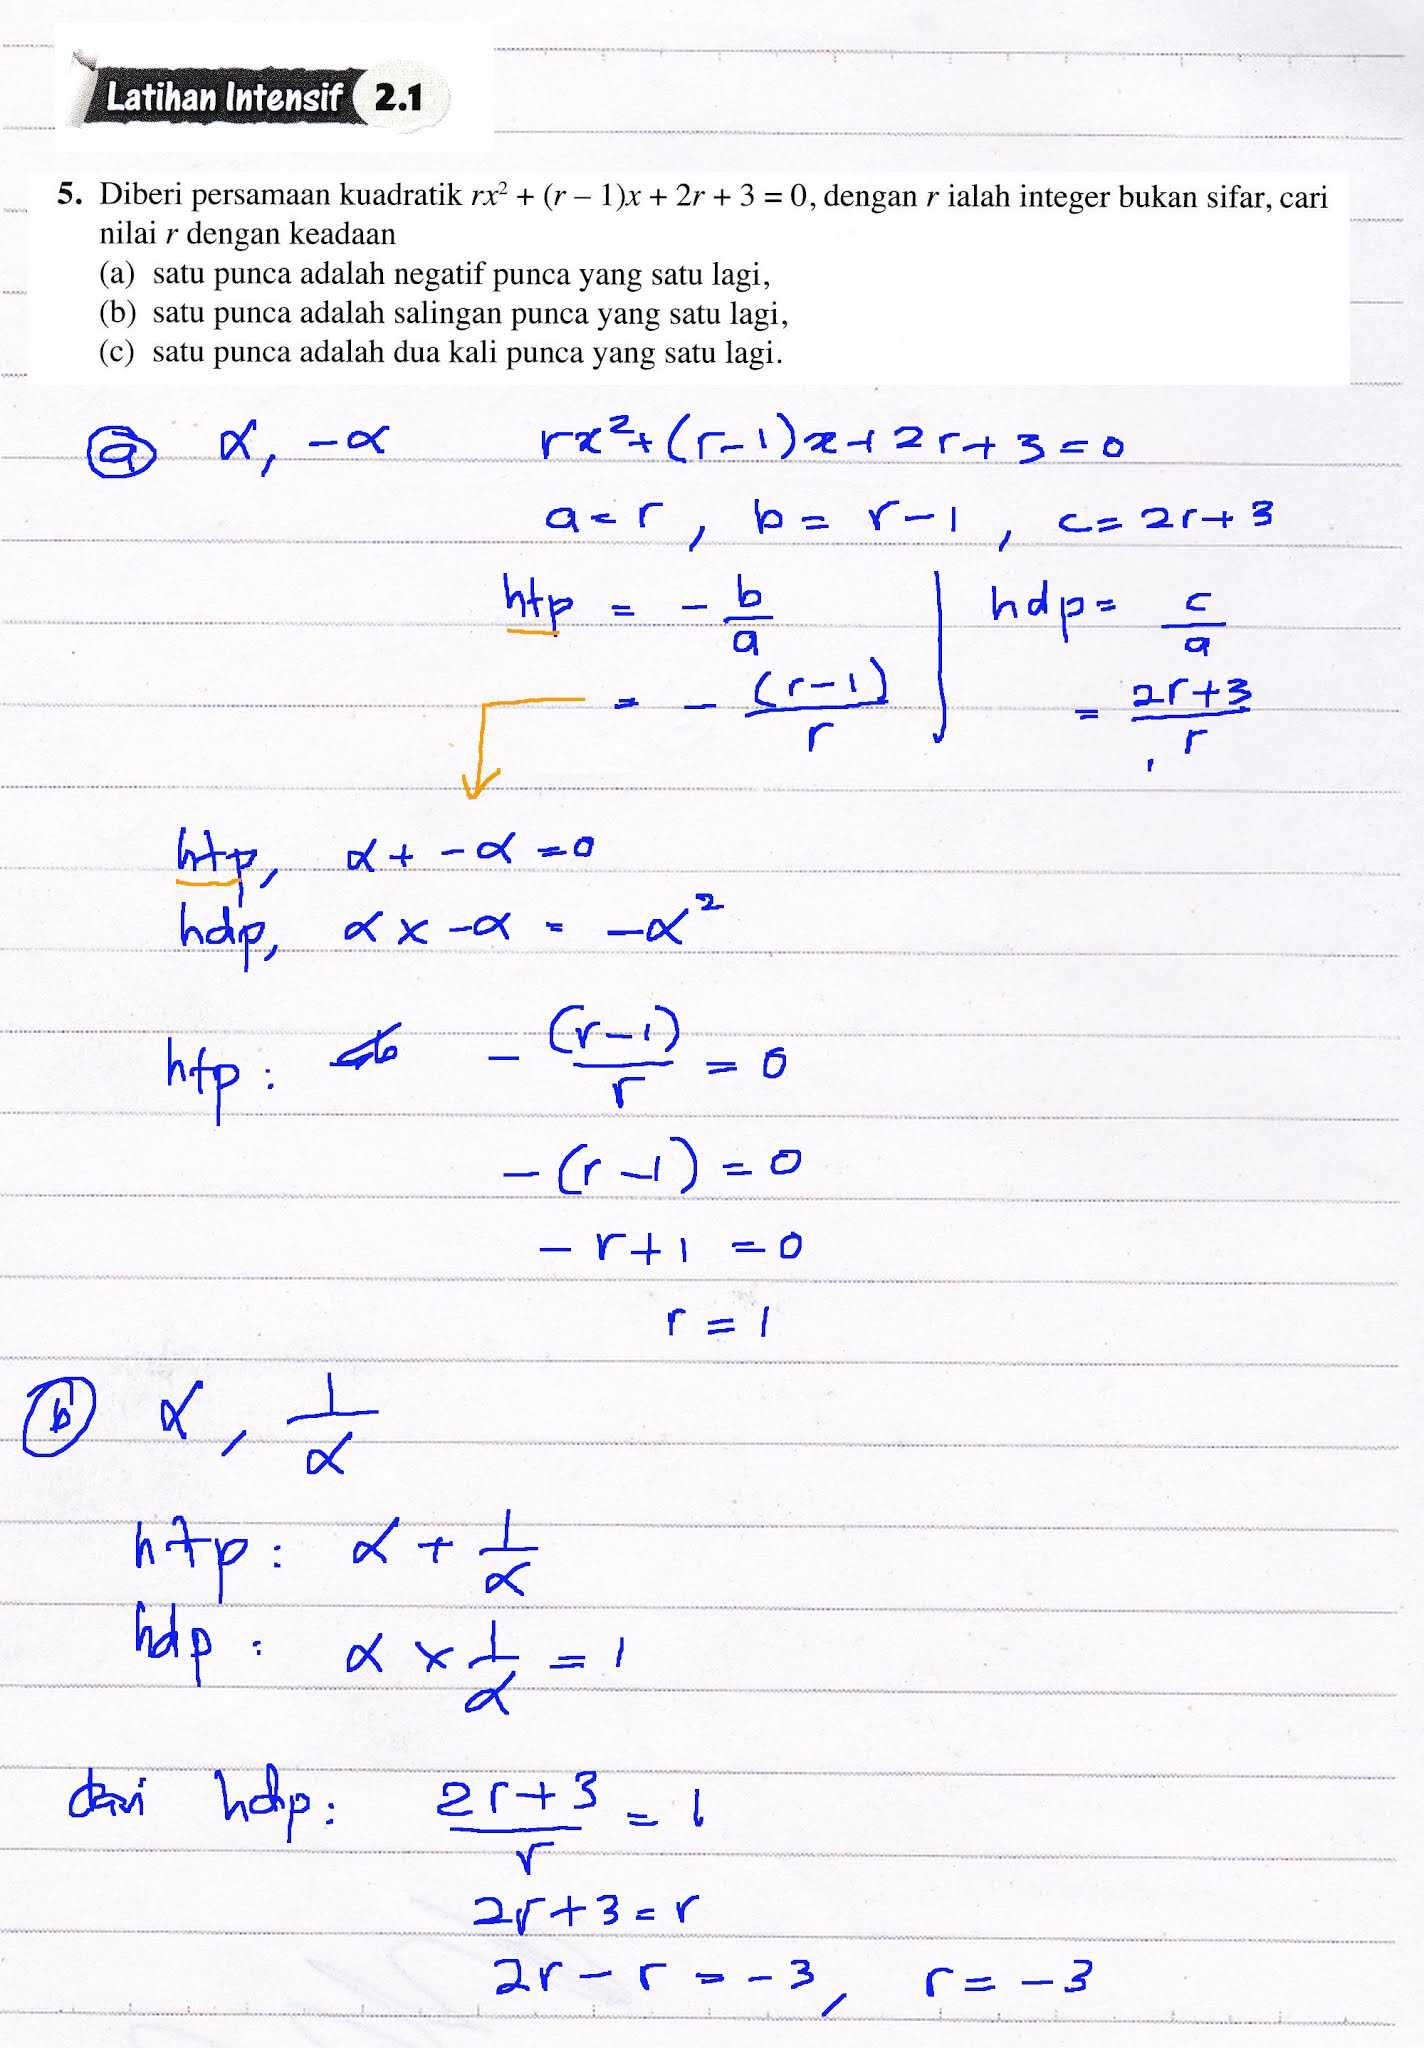 Latihan Intensif 2.1
5. Diberi persamaan kuadratik rx² + (r – 1)x + 2r + 3 = 0, dengan r ialah integer bukan sifar, cari
nilai r dengan keadaan
(a) satu punca adalah negatif punca yang satu lagi,
(b) satu punca adalah salingan punca yang satu lagi,
(c) satu punca adalah dua kali punca yang satu lagi.
(a) α, -α rx²+(r-1)x+2r+3=0
a=r, b=r-1, c=2r+3
htp = -b/a hdp = c/a
= -(r-1)/r = (2r+3)/r
htp, α + -α = 0
hdp, α x -α = -α²
htp: -(r-1)/r = 0
-(r-1) = 0
-r+1 = 0
r = 1
(b) α, 1/α
htp: α + 1/α
hdp: α x 1/α = 1
dari hdp: (2r+3)/r = 1
2r+3 = r
2r - r = -3, r = -3